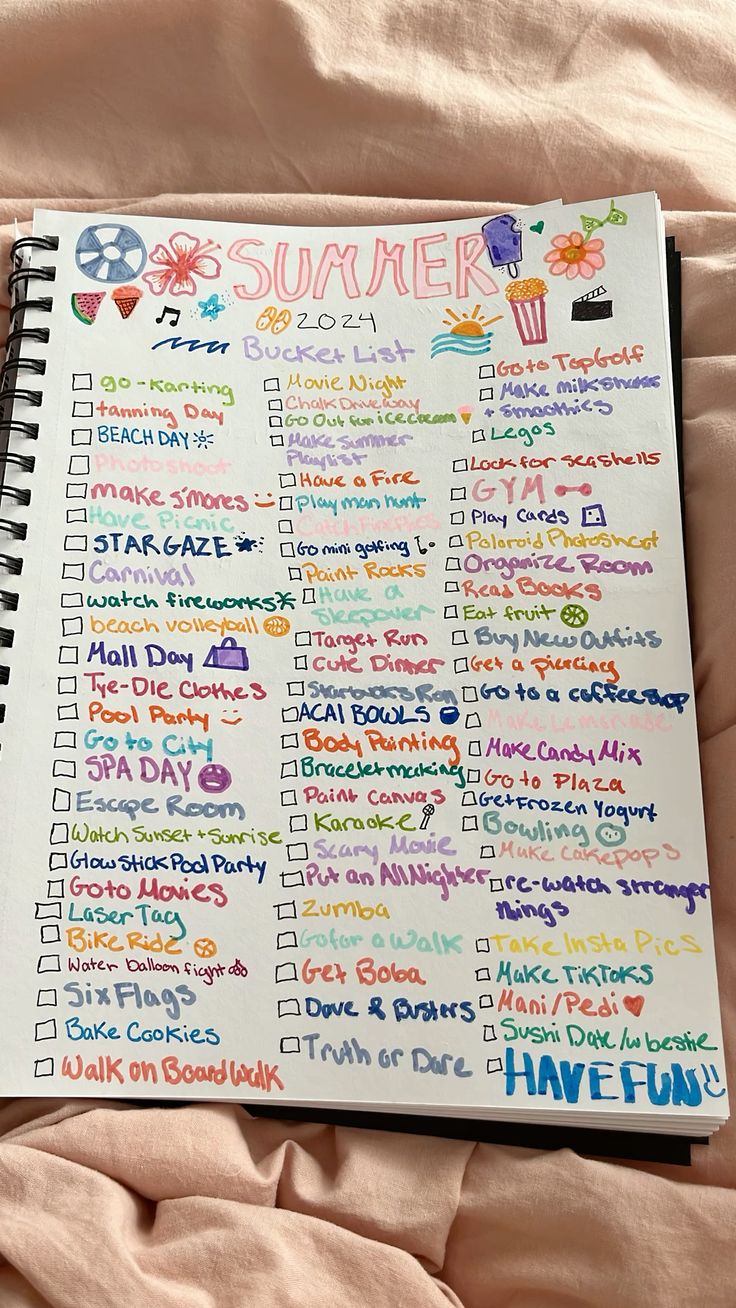 SUMMER
2024
Bucket List
go-karting
tanning Day
BEACH DAY
Photoshoot
make s'mores
Have Picnic
STARGAZE
Carnival
watch fireworks
beach volleyball
Mall Day
Tye-Die Clothes
Pool Party
Go to City
SPA DAY
Escape Room
Watch Sunset + Sunrise
Glow Stick Pool Party
Go to Movies
Laser Tag
Bike Ride
Water balloon fight
Six Flags
Bake Cookies
Walk on Boardwalk
Movie Night
Chalk Driveway
Go Out for icecream
Make Summer
Playlist
Have a Fire
Play man hunt
Catch Fireflies
Go mini golfing
Paint Rocks
Have a
Sleepover
Target Run
Cute Dinner
Starbucks Run
ACAI BOWLS
Body Painting
Bracelet making
Paint Canvas
Karaoke
Scary Movie
Put an All Nighter
Zumba
Go for a Walk
Get Boba
Dave & Busters
Truth or Dare
Go to TopGolf
Make milkshakes
+ Smoothies
Legos
Look for seashells
GYM
Play Cards
Polaroid Photoshoot
Organize Room
Read Books
Eat fruit
Buy New Outfits
Get a piercing
Go to a coffee shop
Make Lemonade
Make Candy Mix
Go to Plaza
Get Frozen Yogurt
Bowling
Make Cakepops
re-watch stranger
things
Take Insta Pics
Make TikToks
Mani/Pedi
Sushi Date /w bestie
HAVE FUN